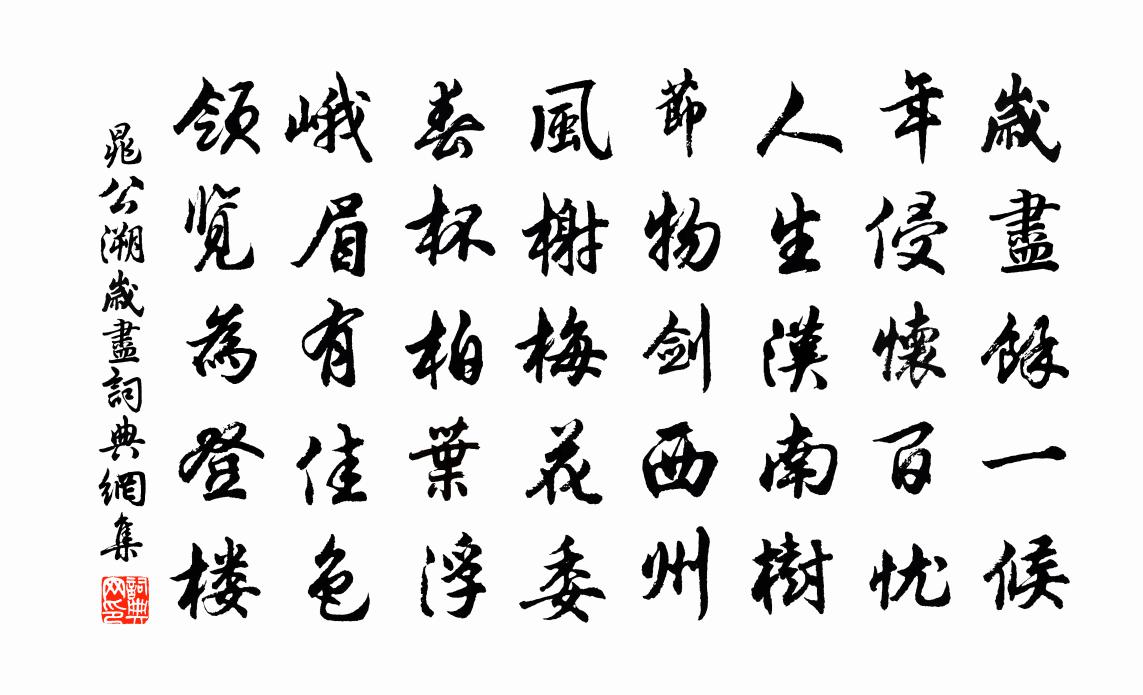 歲盡餘一候
年侵懷百忧
人生漢南樹
節物剑西州
風榭梅花委
春杯柏葉浮
峨眉有佳色
領覽為登楼
晁公溯歲盡詞典網集
詞典网印